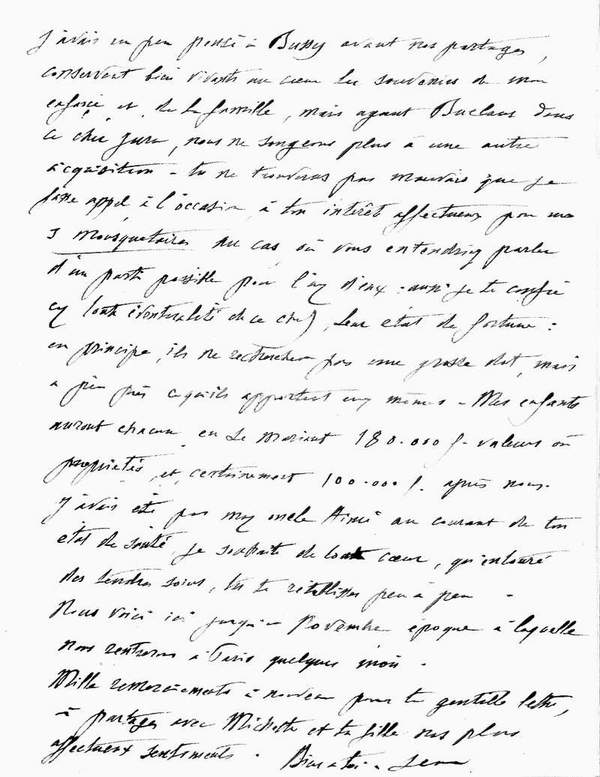 J'avais un peu pensé à Bussy avant nos partages,
conservant bien vivants au cœur les souvenirs de mon
enfance et de la famille, mais ayant Buclaus dans
ce cher Jura, nous ne songeons plus à une autre
acquisition - tu ne trouveras pas mauvais que je
fasse appel à l'occasion, à ton intérêt affectueux pour mes
3 Mousquetaires au cas où vous entendriez parler
d'un parti possible pour l'un d'eux - aussi je te confie
(toute éventualité de ce chef), leur état de fortune :
en principe, ils ne recherchent pas une grosse dot, mais
à peu près ce qu'ils apportent eux mêmes - Mes enfants
auront chacun, en se mariant 180.000 f. valeurs ou
propriétés, et, certainement 100.000 f. après nous.
J'avais été par mon oncle Aimé au courant de ton
état de santé, je souhaite de tout cœur, qu'entouré
des tendres soins, tu te rétablisses peu à peu -
Nous voici ici jusqu'en Novembre époque à laquelle
nous rentrerons à Paris quelques mois.
Mille remerciements à nouveau pour ta gentille lettre,
à partager avec Michette et ta fille nos plus
affectueux sentiments. Bien à toi - Jean